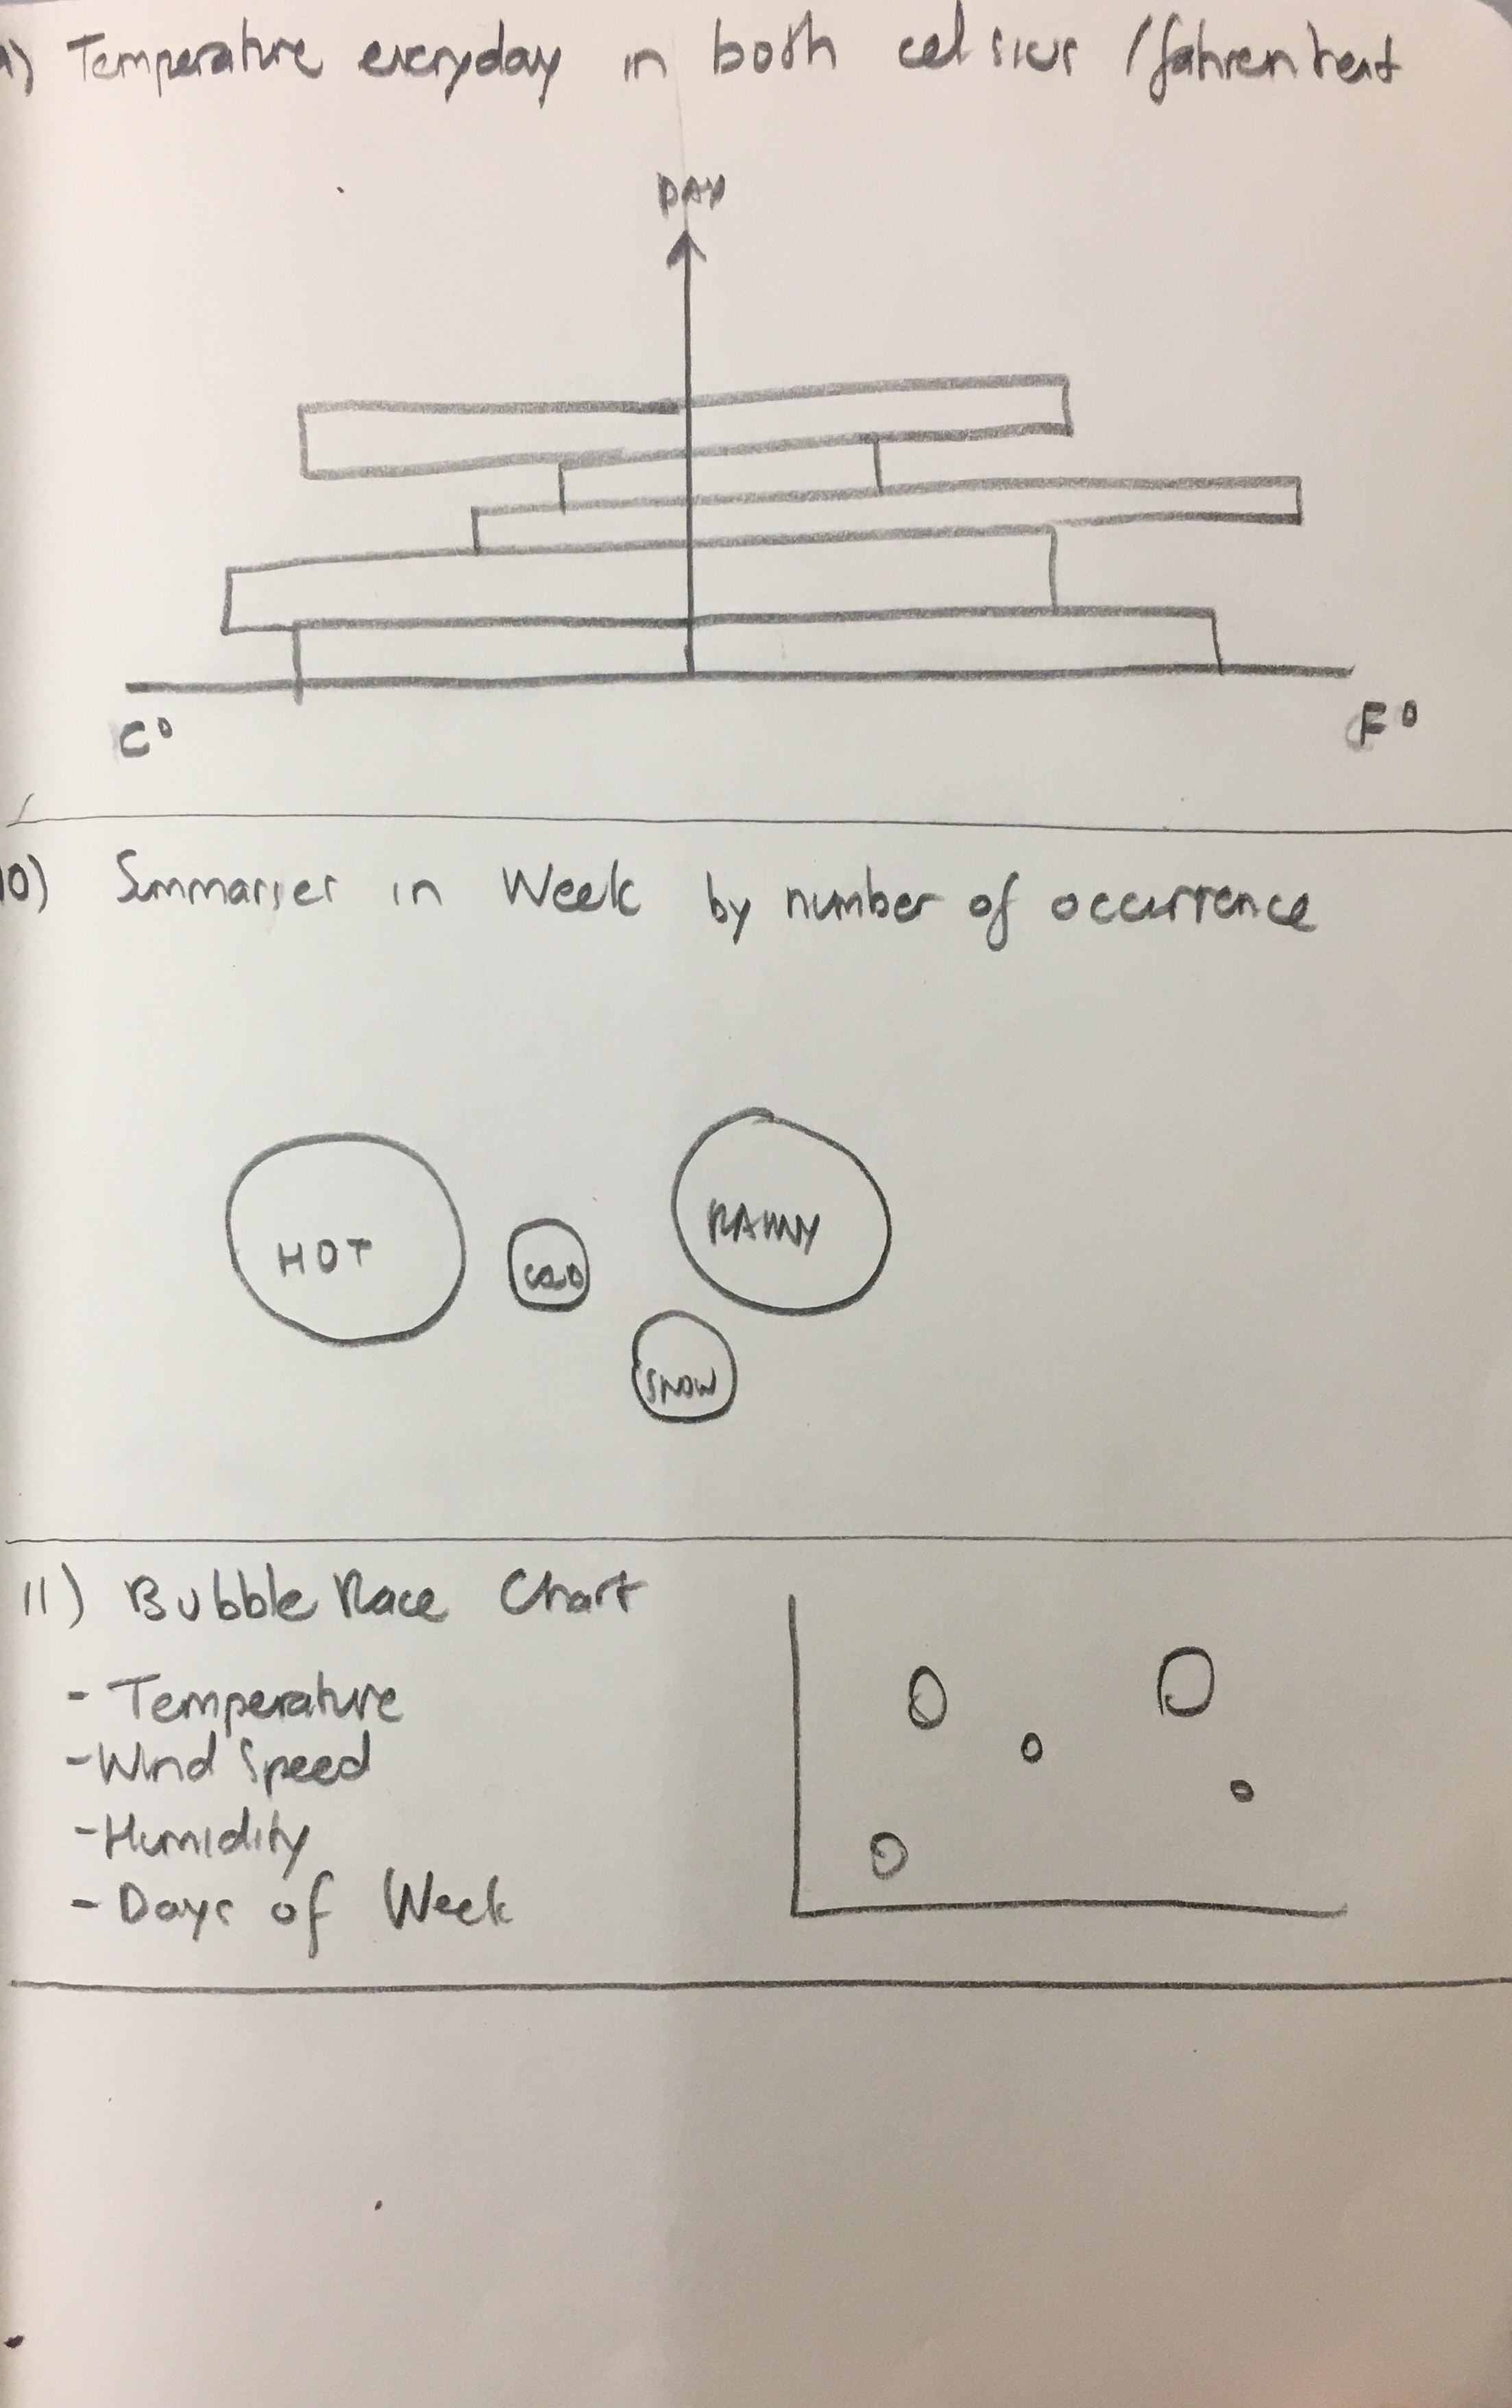 9) Temperature everyday in both celsius / fahrenheit
DAY
C° F°
10) Summaries in Week by number of occurrence
HOT
COLD
RAINY
SNOW
11) Bubble Race Chart
- Temperature
- Wind Speed
- Humidity
- Days of Week